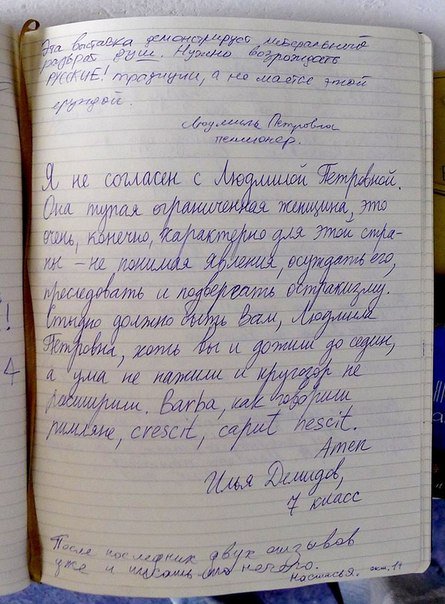 Эта выставка демонстрирует либерального
разврат душ. Нужно возрождать
РУССКИЕ! традиции, а не маетсе этой
ерундой.
Людмила Петровна
пенсионер.
Я не согласен с Людмилой Петровной.
Она тупая ограниченная женщина, это
очень, конечно, характерно для этой стра-
ны – не понимая явления, осуждать его,
преследовать и подвергать остракизму.
Стыдно должно быть Вам, Людмила
Петровна, хоть вы и дожили до седин,
а ума не нажили и кругозор не
расширили. Barba, как говорили
римляне, crescit, caput nescit.
Amen
Илья Демидов,
7 класс
После последних двух отзывов
уже и писать-то нечего.
Настасья. окт. 14
!
4